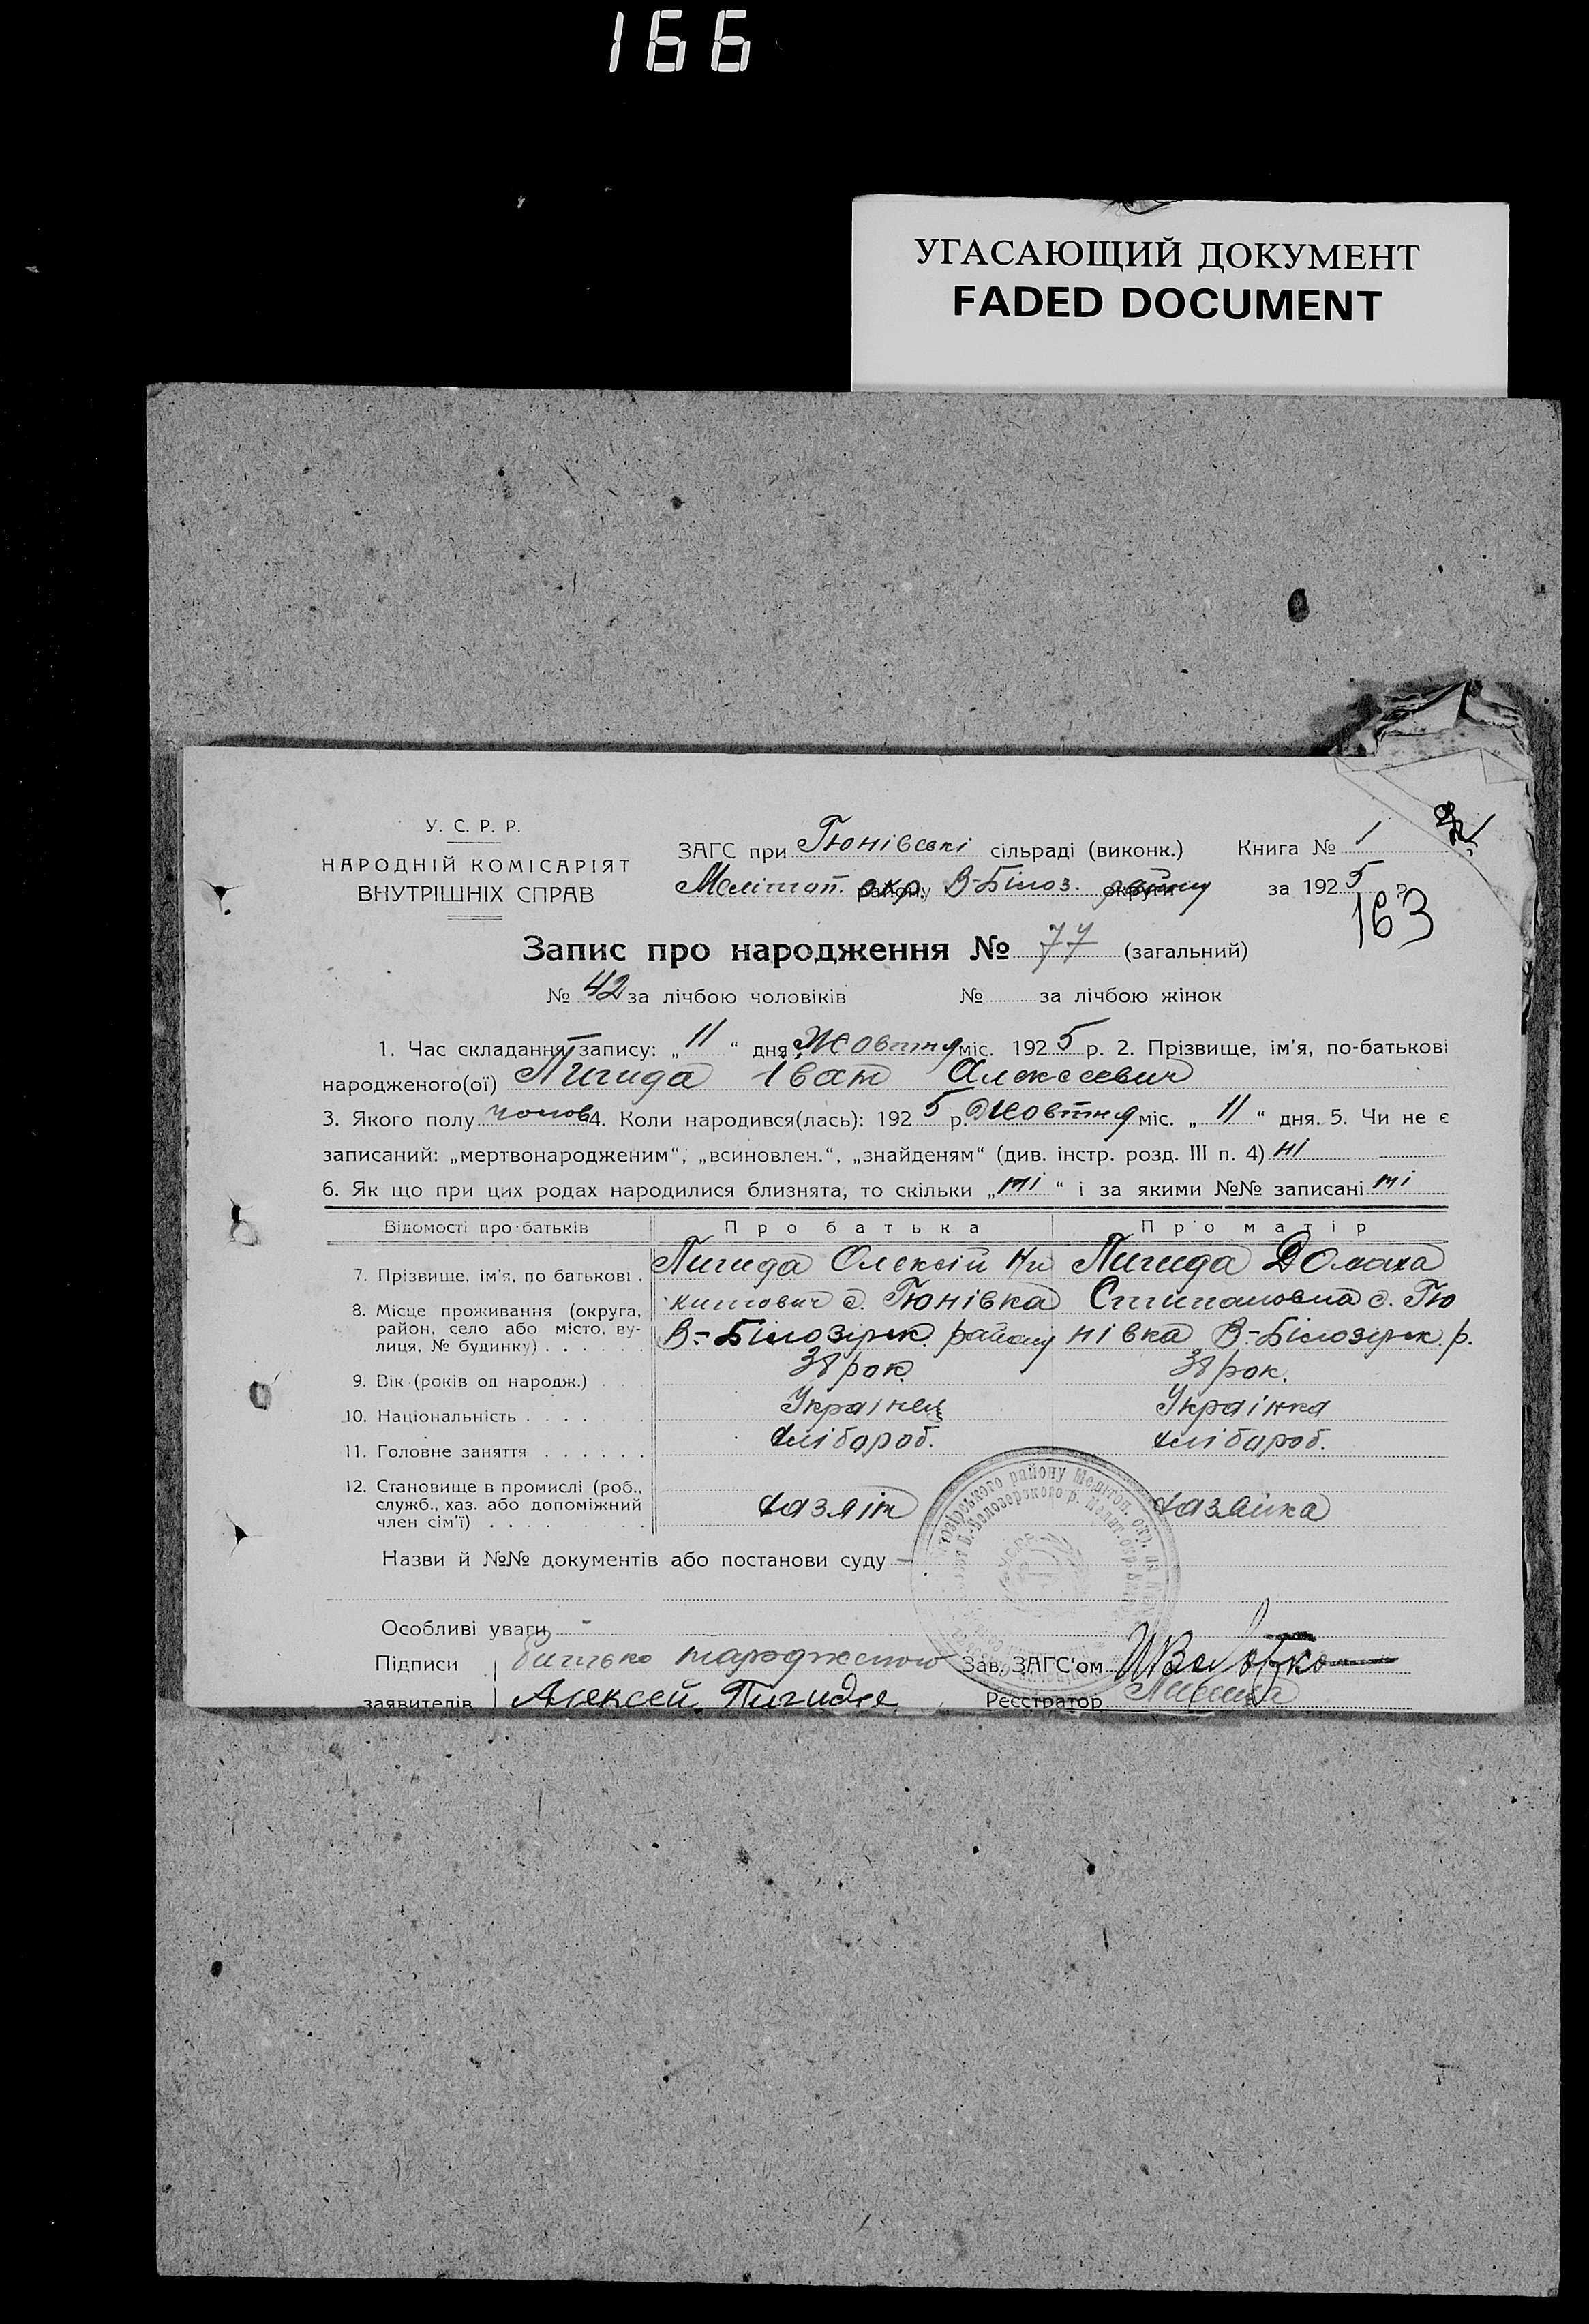 166
УГАСАЮЩИЙ ДОКУМЕНТ
FADED DOCUMENT
У. С. Р. Р.
НАРОДНІЙ КОМІСАРІЯТ
ВНУТРІШНІХ СПРАВ
ЗАГС при Гюнівські сільраді (виконк.)
Мелітоп. окр. району В-Білоз. району округи
Книга № 1
за 1925 р.
163
Запис про народження № 77 (загальний)
№ 42 за лічбою чоловіків № за лічбою жінок
1. Час складання запису: „11“ дня Жовтня міс. 1925 р. 2. Прізвище, ім'я, по-батькові
народженого(ої) Пигида Іван Алексеевич
3. Якого полу чолов 4. Коли народився(лась): 1925 р. Жовтня міс. „11“ дня. 5. Чи не є
записаний: „мертвонародженим“, „всиновлен.“, „знайденям“ (див. інстр. розд. III п. 4) ні
6. Як що при цих родах народилися близнята, то скільки „ні“ і за якими №№ записані ні
Відомості про батьків Про батька Про матір
7. Прізвище, ім'я, по батькові . Пигида Олексій Ни Пигида Домаха
8. Місце проживання (округа, китович с. Гюнівка Степановна с. Гю
район, село або місто, ву-
лиця, № будинку) . . . . . . В.-Білозірск. району нівка В-Білозірск. р.
9. Вік (років од народж.) . . 38 рок. 38 рок.
10. Національність . . . . . Українец Українка
11. Головне заняття . . . . . . хлібороб. хлібороб.
12. Становище в промислі (роб.,
служб., хаз. або допоміжний
член сім'ї) . . . . . . . хазяін хазяйка
Назви й №№ документів або постанови суду —
Особливі уваги -
Підписи батько народженого Зав. ЗАГС'ом
заявителів Алексей Пигида Реєстратор